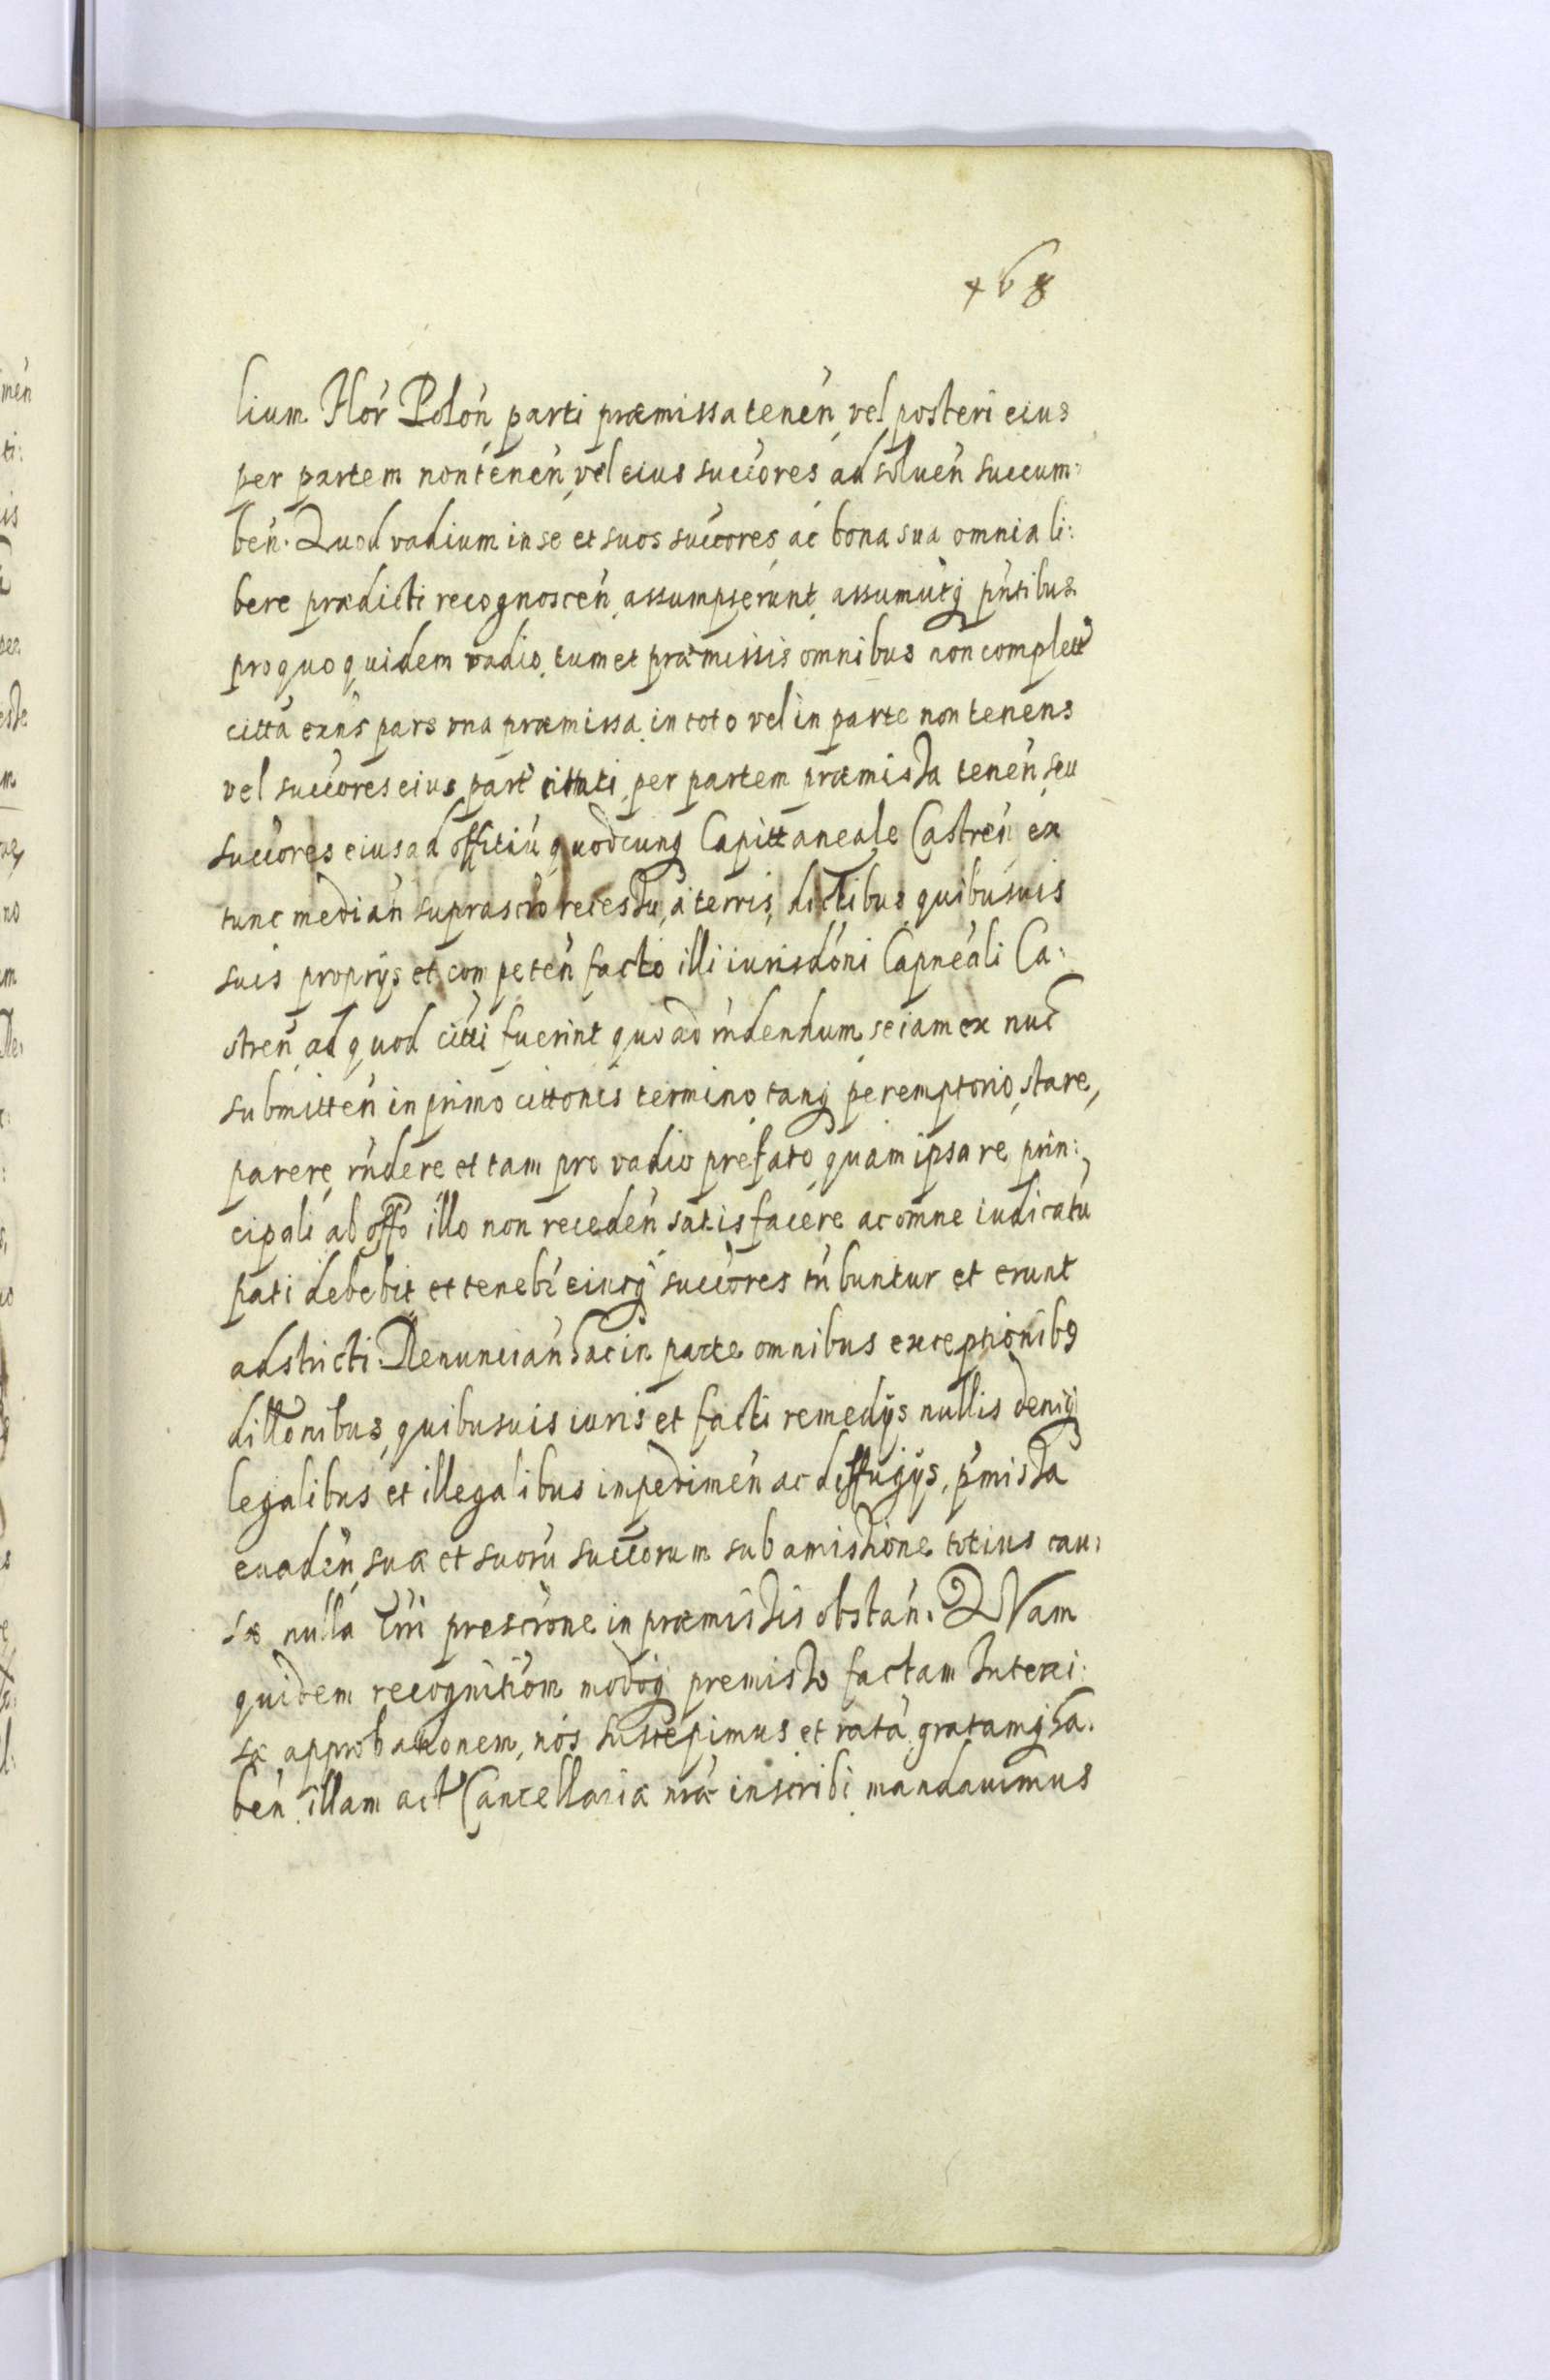 468
lium Flor̄ Polon̄ parti præmissa tenen̄, vel posteri eius
per partem non tenen̄, vel eius succ̄ores ad soluen̄ succum:
ben̄. Quod vadium in se et suos succ̄ores ac bona sua omnia li:
bere prædicti recognoscen̄ assumpserunt assumūtq; pn̄tibus
pro quo quidem vadio, tum et præmissis omnibus non complet̄
citta exn̄s pars vna præmissa in toto vel in parte non tenens
vel succ̄ores eius part̄ cittati per partem præmissa tenen̄, seu
succ̄ores eius ad offitiū quodcunq; Capittaneale Castren̄ ex
tunc median̄ suprascr̄o recessu, a terris, dictibus quibusuis
suis proprijs et competen̄ facto illi iurisdōni Capneāli Ca:
stren̄ ad quod citti fuerint quo ad rn̄dendum se iam ex nūc
submitten̄ in primo cittonis termino tanq; peremptorio, stare,
parere, rn̄dere et tam pro vadio prefato quam ipsa re prin:
cipali ab offo illo non receden̄ satisfacere ac omne iudicatū
pati debebit et tenebr̄ eiusq; succ̄ores tn̄buntur et erunt
adstricti. Renuncian̄ hac in parte omnibus exceptionibꝯ
dillonibus, quibusuis iuris et facti remedijs nullis deniq;
legalibus et illegalibus impedimen̄ ac diffugijs, p̄missa
euaden̄, sua et suorū succ̄orum sub amissione totius cau:
sæ nulla tr̄ri prescrione in præmissis obstan̄. QVam
quidem recognition̄ modoq; premisso factam
sæ approbationem, nos suscepimus et ratā gratamq; ha:
ben̄ illam act̄ Cancellariæ nr̄æ inscribi mandauimus